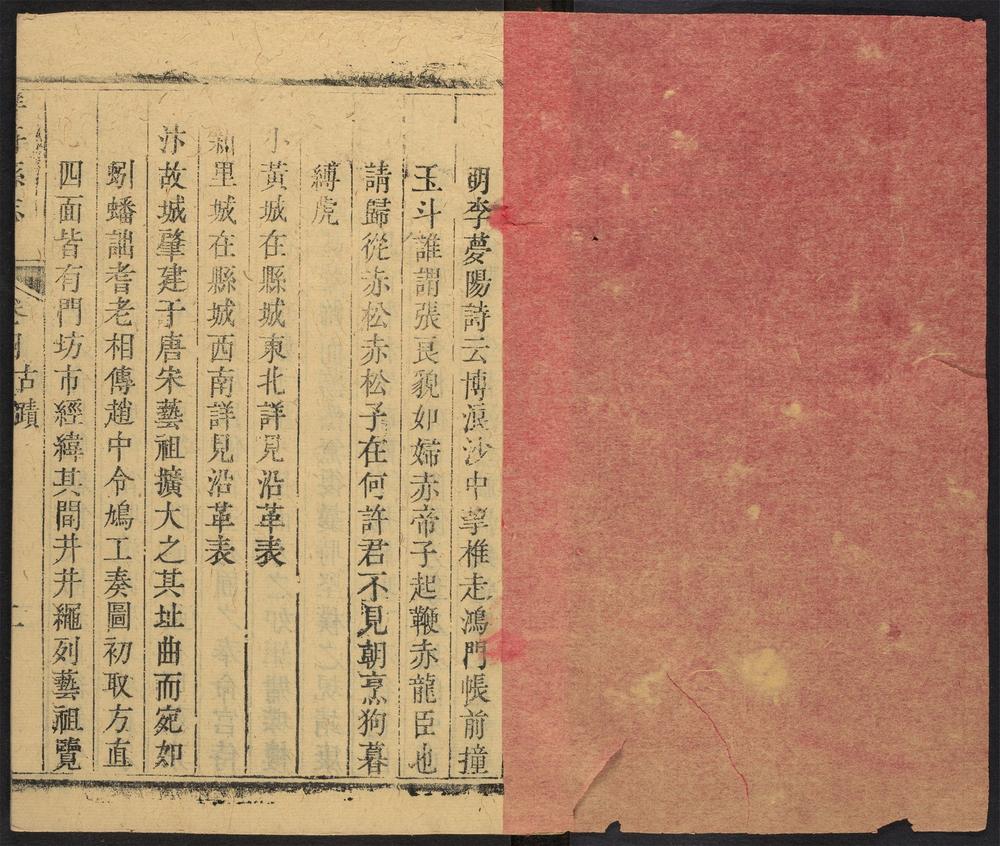 明李夢陽詩云博浪沙中擊椎走鴻門帳前撞
玉斗誰謂張良貌如婦赤帝子起鞭赤龍臣也
請歸從赤松赤松子在何許君不見朝烹狗暮
縛虎
小黃城在縣城東北詳見沿革表
新里城在縣城西南詳見沿革表
汴故城肇建于唐宋藝祖擴大之其址曲而宛如
蚓蟠詘耆老相傳趙中令鳩工奏圖初取方直
四面皆有門坊市經緯其間井井繩列藝祖覽
祥符縣志
古蹟